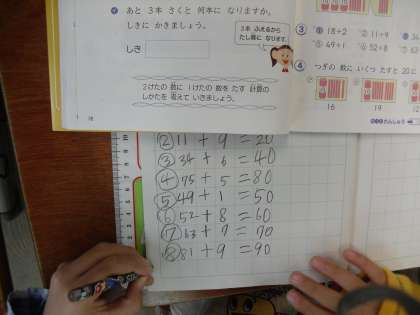 あと 3本 さくと 何本に なりますか。
しきに かきましょう。
しき
3本 ふえるから
たし算に なります。
2けたの 数に 1けたの 数を たす 計算の
しかたを 考えて いきましょう。
78
③
① 18+2 ② 11+9
⑤ 49+1 ⑥ 52+8
④ つぎの 数に いくつ たすと 20に
16 19 12
② 11+9=20
③ 34+6=40
④ 75+5=80
⑤ 49+1=50
⑥ 52+8=60
⑦ 63+7=70
⑧ 81+9=90